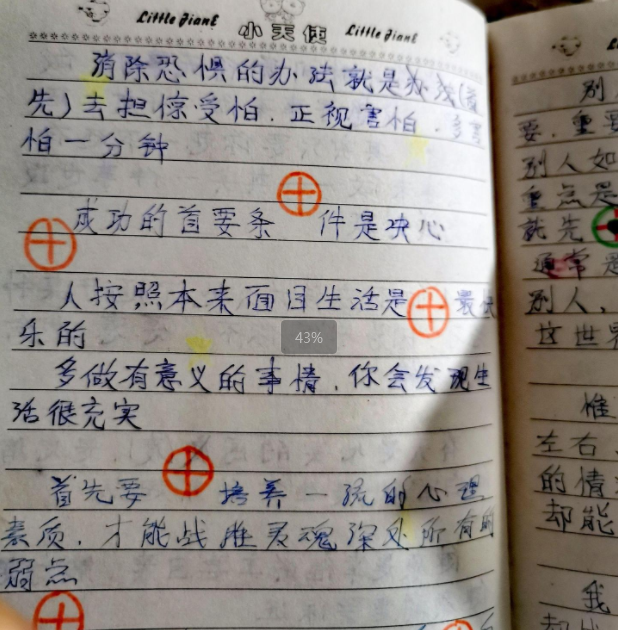 Little Giant 小天使 Little Giant
消除恐惧的办法就是办法(
先)去担惊受怕.正视害怕.多害
怕一分钟
成功的首要条 件是决心
人按照本来面目生活是 最快
乐的
43%
多做有意义的事情.你会发现生
活很充实
首先要 培养一流的心理
素质.才能战胜灵魂深处所有的
弱点
别
要.重要
别人如
重点是
就先
通常是
别人.
这世界
惟
左右.
的情
却能
我